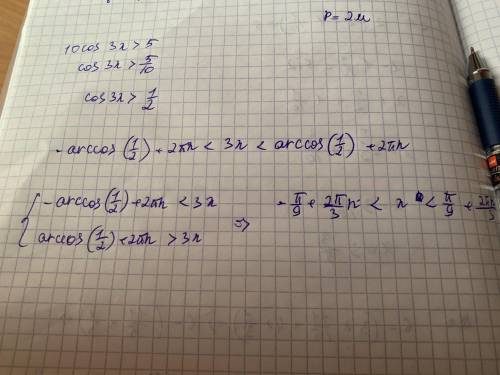 P = 2м
10cos 3x > 5
cos 3x > 5/10
cos 3x > 1/2
- arccos (1/2) + 2πn < 3x < arccos (1/2) + 2πn
{ - arccos (1/2) + 2πn < 3x
arccos (1/2) + 2πn > 3x ⇒ - π/9 + 2π/3 n < x < π/9 + 2πn/3